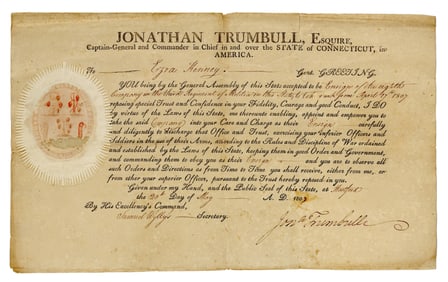 JONATHAN TRUMBULL, ESQUIRE,
Captain-General and Commander in Chief in and over the STATE of CONNECTICUT, in
AMERICA.
To Ezra Kenney Gent. GREETING.
YOU being by the General Assembly of this State accepted to be Ensign of the eighth
Company in the third Regiment of Militia in the State
reposing special Trust and Confidence in your Fidelity, Courage and good Conduct, I DO
by virtue of the Laws of this State, me thereunto enabling, appoint and impower you to
take the said Company into your Care and Charge as their Ensign carefully
and diligently to discharge that Office and Trust, exercising your inferior Officers and
Soldiers in the use of their Arms, according to the Rules and Discipline of War ordained
and established by the Laws of this State, keeping them in good Order and Government,
and commanding them to obey you as their Ensign and you are to observe all
such Orders and Directions as from Time to Time you shall receive, either from me, or
from other your superior Officer, pursuant to the Trust hereby reposed in you.
Given under my Hand, and the Public Seal of this State, at Hartford
the Day of May A. D. 1807
By His Excellency's Command,
Samuel Wyllys Secretary.
Jonth Trumbull